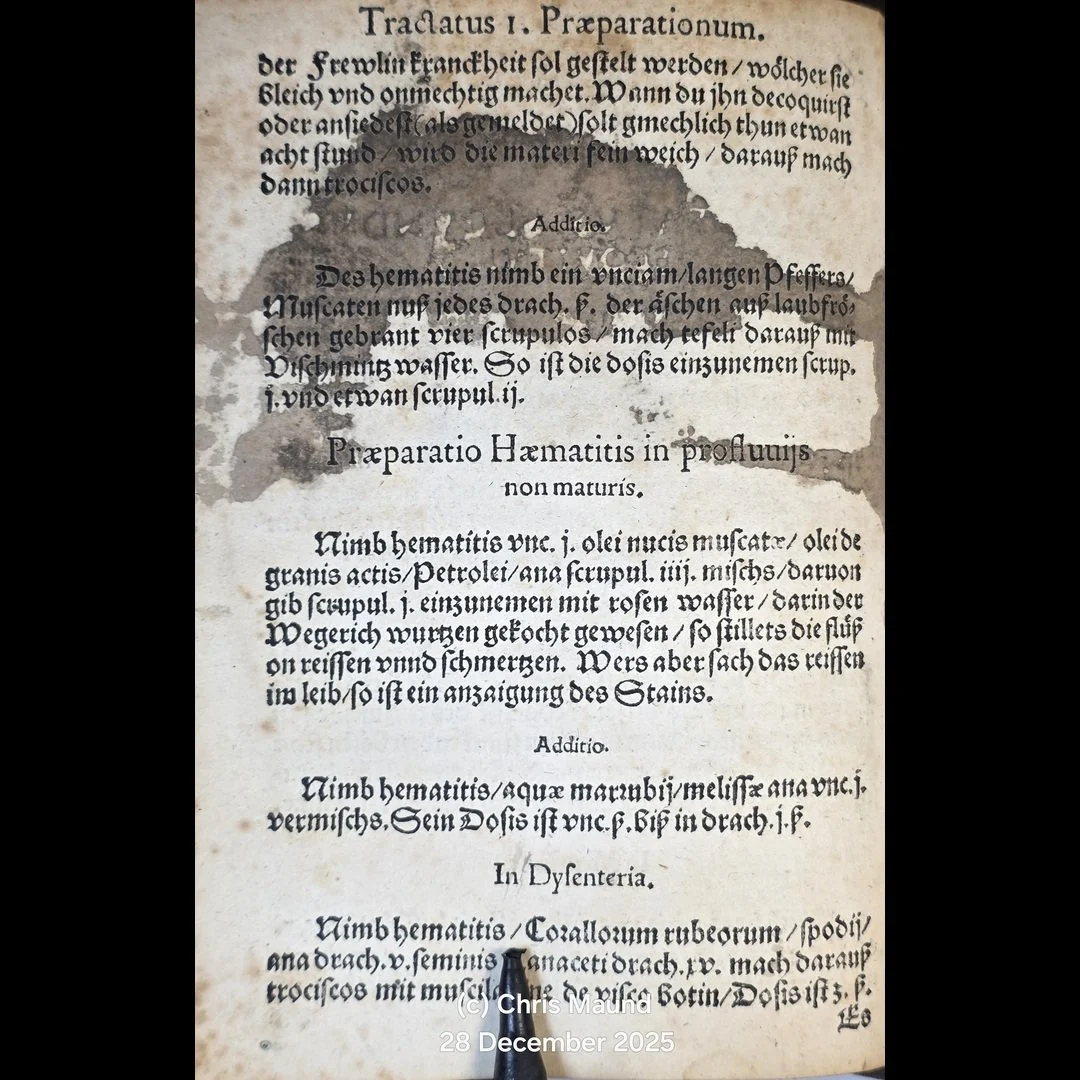 Tractatus 1. Præparationum.
der Frewlin kranckheit sol gestelt werden / wölcher sie
bleich vnd onmechtig machet. Wann du jhn decoquirst
oder ansiedest (als gemeldet) solt gmechlich thun etwan
acht stund / wird die materi fein weich / darauß mach
dann trociscos.
Additio.
Des hematitis nimb ein vnciam/langen Pfeffers/
Muscaten nuß jedes drach. ß. der äschen auß laubfrö-
schen gebrant vier scrupulos / mach tefeli darauß mit
Vischmintz wasser. So ist die dosis einzunemen scrup.
j. vnd etwan scrupul. ij.
Præparatio Hæmatitis in profluuijs
non maturis.
Nimb hematitis vnc. j. olei nucis muscatæ/ olei de
granis actis/Petrolei/ana scrupul. iiij. mischs/daruon
gib scrupul. j. einzunemen mit rosen wasser / darin der
Wegerich wurtzen gekocht gewesen / so stillets die flüß
on reissen vnnd schmertzen. Wers aber sach das reissen
im leib/so ist ein anzaigung des Stains.
Additio.
Nimb hematitis/aquæ marrubij/melissæ ana vnc. j.
vermischs. Sein Dosis ist vnc. ß. biß in drach. j. ß.
In Dysenteria.
Nimb hematitis / Corallorum rubeorum / spodij/
ana drach. v. seminis drach. xv. mach darauß
trociscos mit de visco botin/Dosis ist ʒ. ß.
Es
(c) Chris Maund
28 December 2025